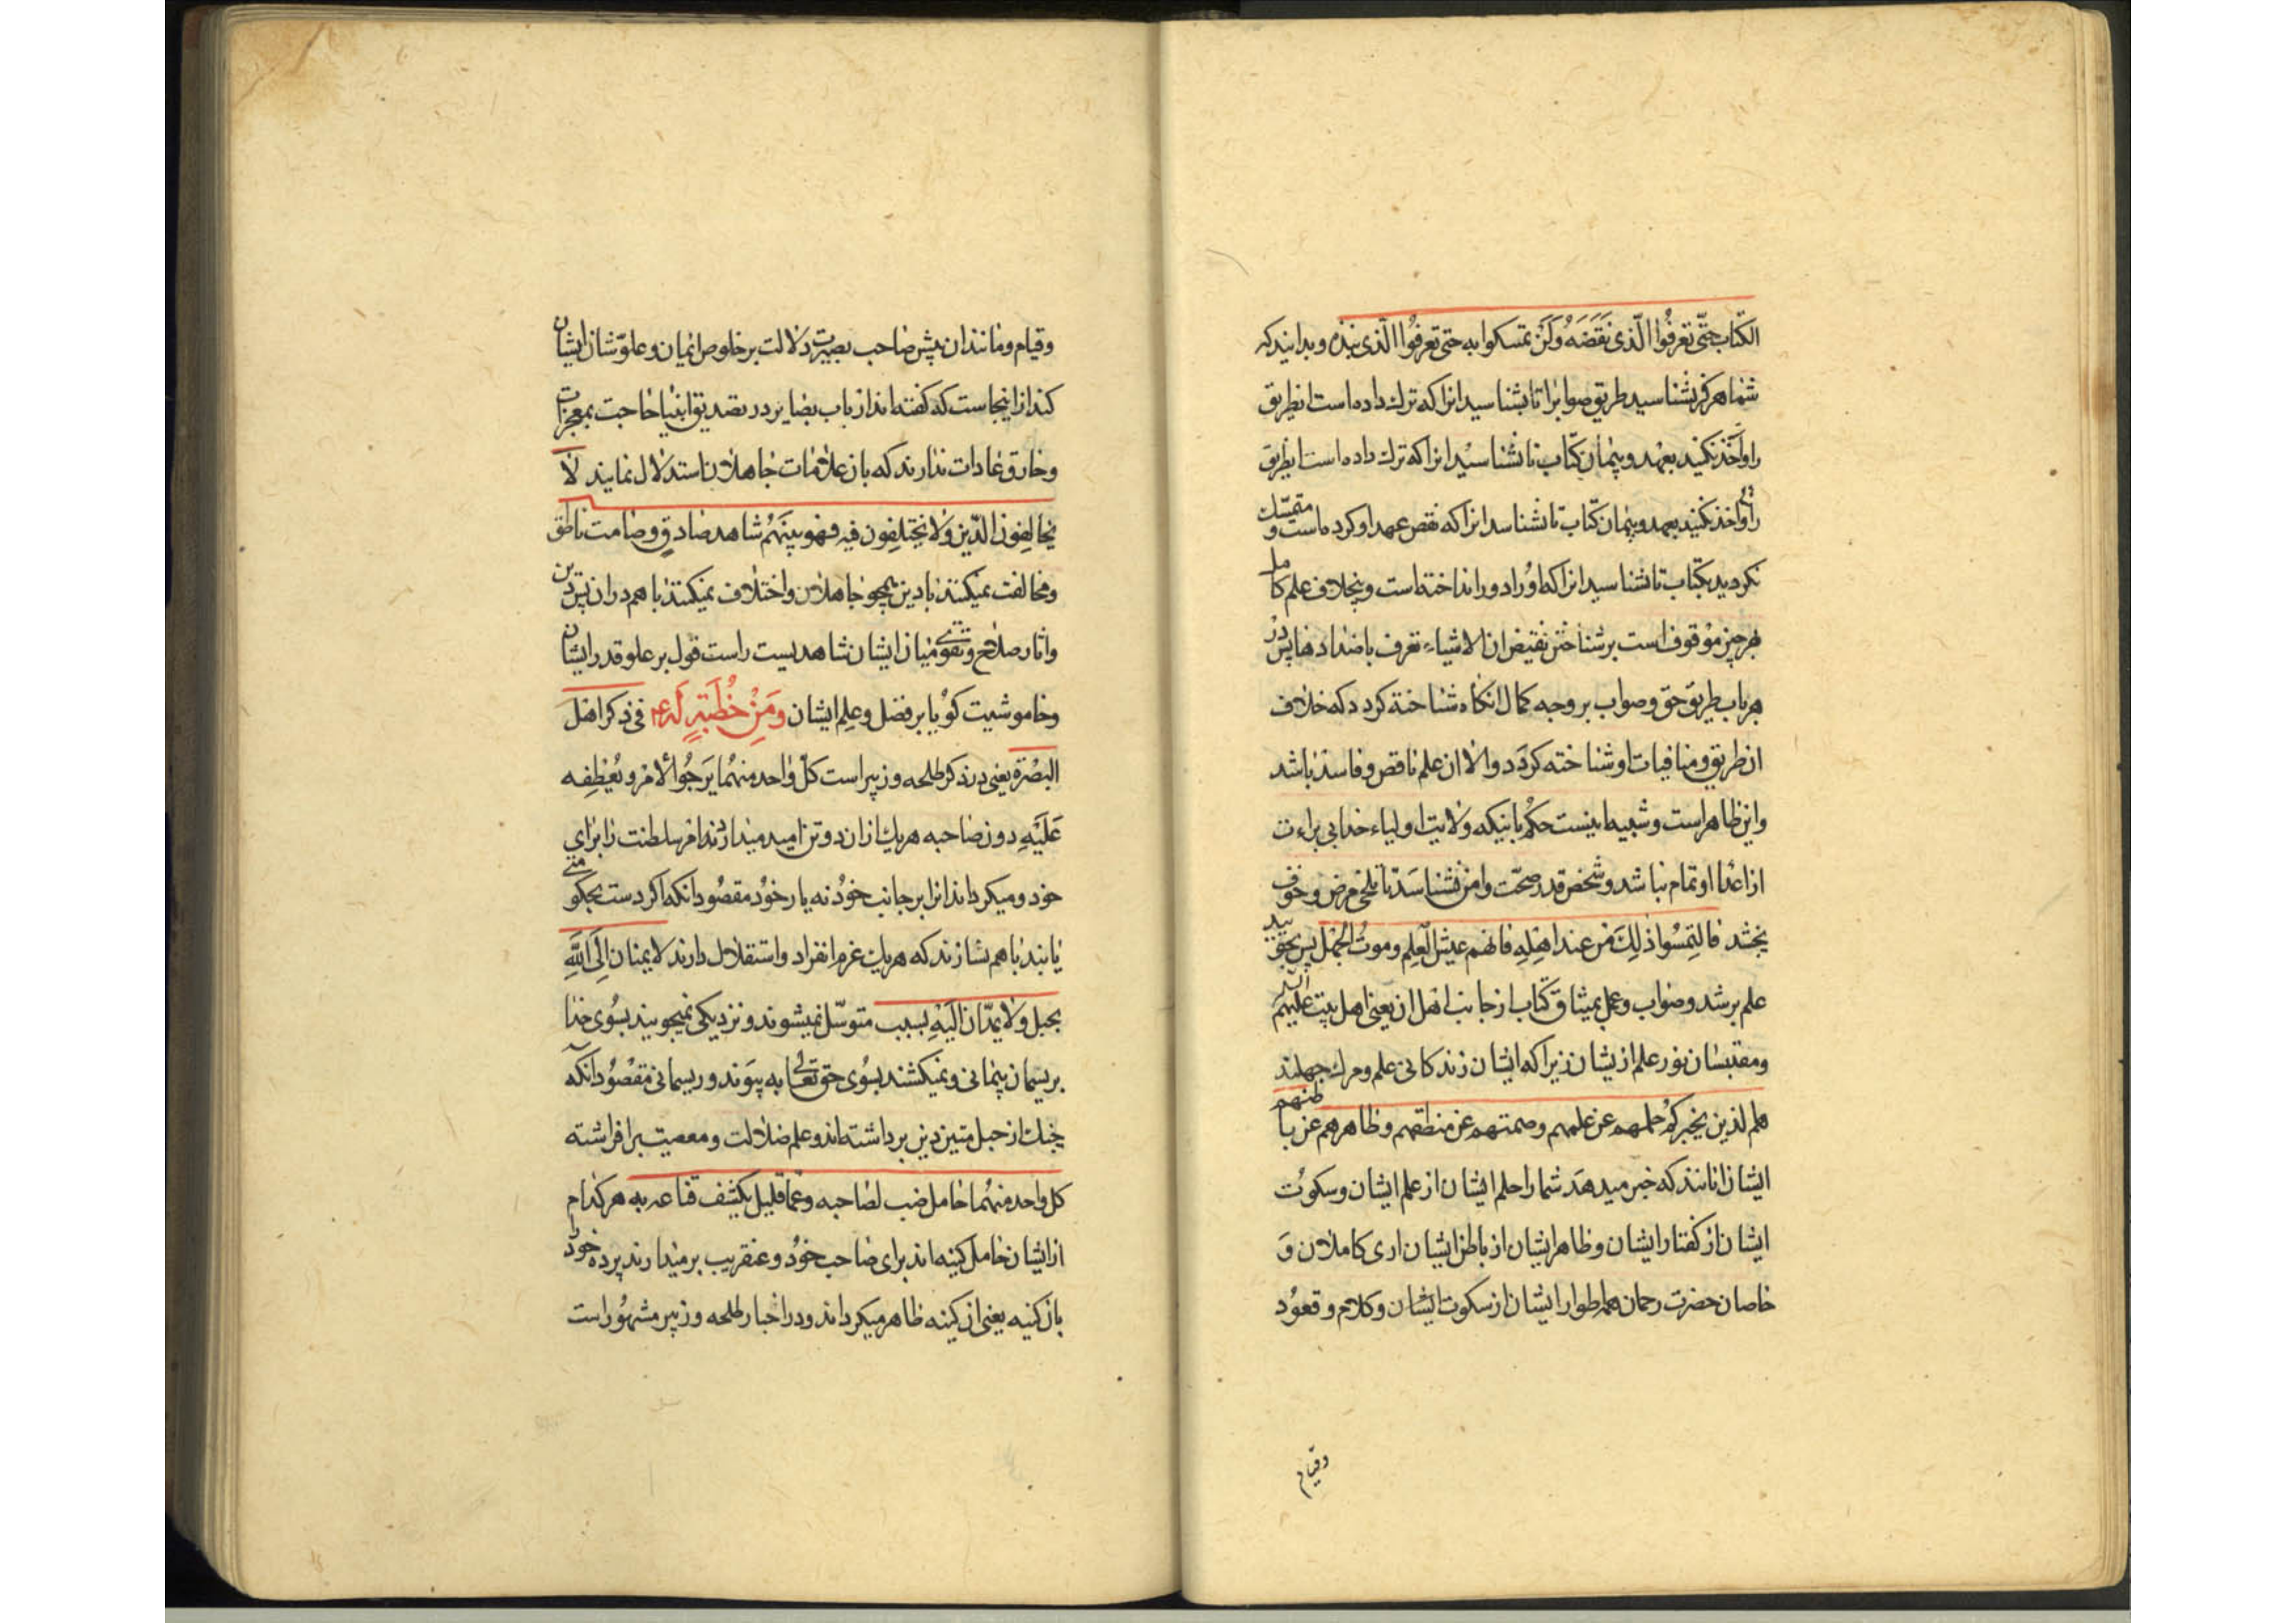 الکتاب حتّی تعرفوا الّذی نَقَضَهُ وَلَن تمسکوا به حتی تعرفوا الّذی نبذه و بدانید که
شما هرکز نشناسید طریق صوابرا تا بشناسید انرا که ترک داده است انطریق
را و اخذ نکنید بعهد و پیمان کتاب تا نشناسید انرا که ترک داده است انطریق
را و اخذ نکنید بعهد و پیمان کتاب تا نشناسد انرا که نقص عهد او کرده است و متمسّک
نکردید بکتاب تا نشناسید انرا که او را دور انداخته است و بخلاف علم کامل
بهرچیز موقوف است برشناختن نقیض ان الاشیاء تعرف باضدادها پس در
هرباب طریق حق و صواب بر وجه کمال انکاه شناخته کردد که خلاف
ان طریق و منافیات او شناخته کردد و الا ان علم ناقص و فاسد باشد
و این ظاهر است و شبیه باینست حکم باینکه ولایت اولیاء خدا بی براءت
از اعدا او تمام نباشد و شخص قدر صحّت و امن نشناسد تا تلخی مرض و خوف
نچشد فالتمسوا ذلِکَ من عند اهلِهِ فانهم عیش العِلم و موتُ الجهل پس بجوئید
علم برشد و صواب و عمل بمیثاق کتاب از جانب اهل ان یعنی اهل بیت علیهم السّلم
و مقتبسان نور علم ازیشان زیرا که ایشان زندکانی علم و مرک جهلند
هم الذین یخبرکم حلمهم عن علمهم و صمتهم عن منطقهم و ظاهرهم عن باطنهم
ایشان انانند که خبر میدهد شما را حلم ایشان از علم ایشان و سکوت
ایشان از کفتار ایشان و ظاهر ایشان از باطن ایشان اری کاملان و
خاصان حضرت رحمان همه اطوار ایشان از سکوت ایشان و کلام و قعود
و قیام
و قیام و مانند ان پیش صاحب بصیرت دلالت بر خلوص ایمان و علوّ شان ایشان
کند از اینجاست که کفته اند ارباب بصایر در تصدیق انبیا حاجت بمعجزات
و خارق عادات ندارند که بان علامات جاهلان استدلال نمایند لا
یخالفون الدّین ولا یختلفون فیه فهو بینَهُم شاهد صادق و صامت ناطق
و مخالفت نمیکنند با دین همچو جاهلان و اختلاف نمیکنند با هم در ان پس دین
و اثار صلاح و تقوی میان ایشان شاهدیست راست قول بر علو قدر ایشان
و خاموشیت کویا بر فضل و علم ایشان وَمِنْ خُطبَةٍ لَه ع فی ذکر اهل
البصْرَة یعنی در ذکر طلحه و زبیر است کلّ واحد منهُما یَرجُوا الامرَ و یُعْطِفه
عَلَیْهِ دون صاحبه هریک از ان دو تن امید میدارند امر سلطنت را برای
خود و میکرداند انرا بر جانب خود نه یار خود مقصود انکه اکر دست بحکومتی
یابند با هم نسازند که هریک عزم انفراد و استقلال دارند لا یمتان اِلَی اللّهِ
بحبل ولا یمدّان الَیْهِ بسبب متوسّل نمیشوند و نزدیکی نمیجویند بسوی خدا
بریسمان پیمانی و نمیکشند بسوی حق تعالی به پیوند و ریسمانی مقصود انکه
چنک از حبل متین دین برداشته اند و علم ضلالت و معصیت برافراشته
کل واحد منهُما حامل ضب لصاحبه و عمّا قلیل یکشف قناعه به هر کدام
از ایشان حامل کینه اند برای صاحب خود و عنقریب برمیدارند پرده خود
بان کینه یعنی ان کینه ظاهر میکرداند و در اخبار طلحه و زبیر مشهور است